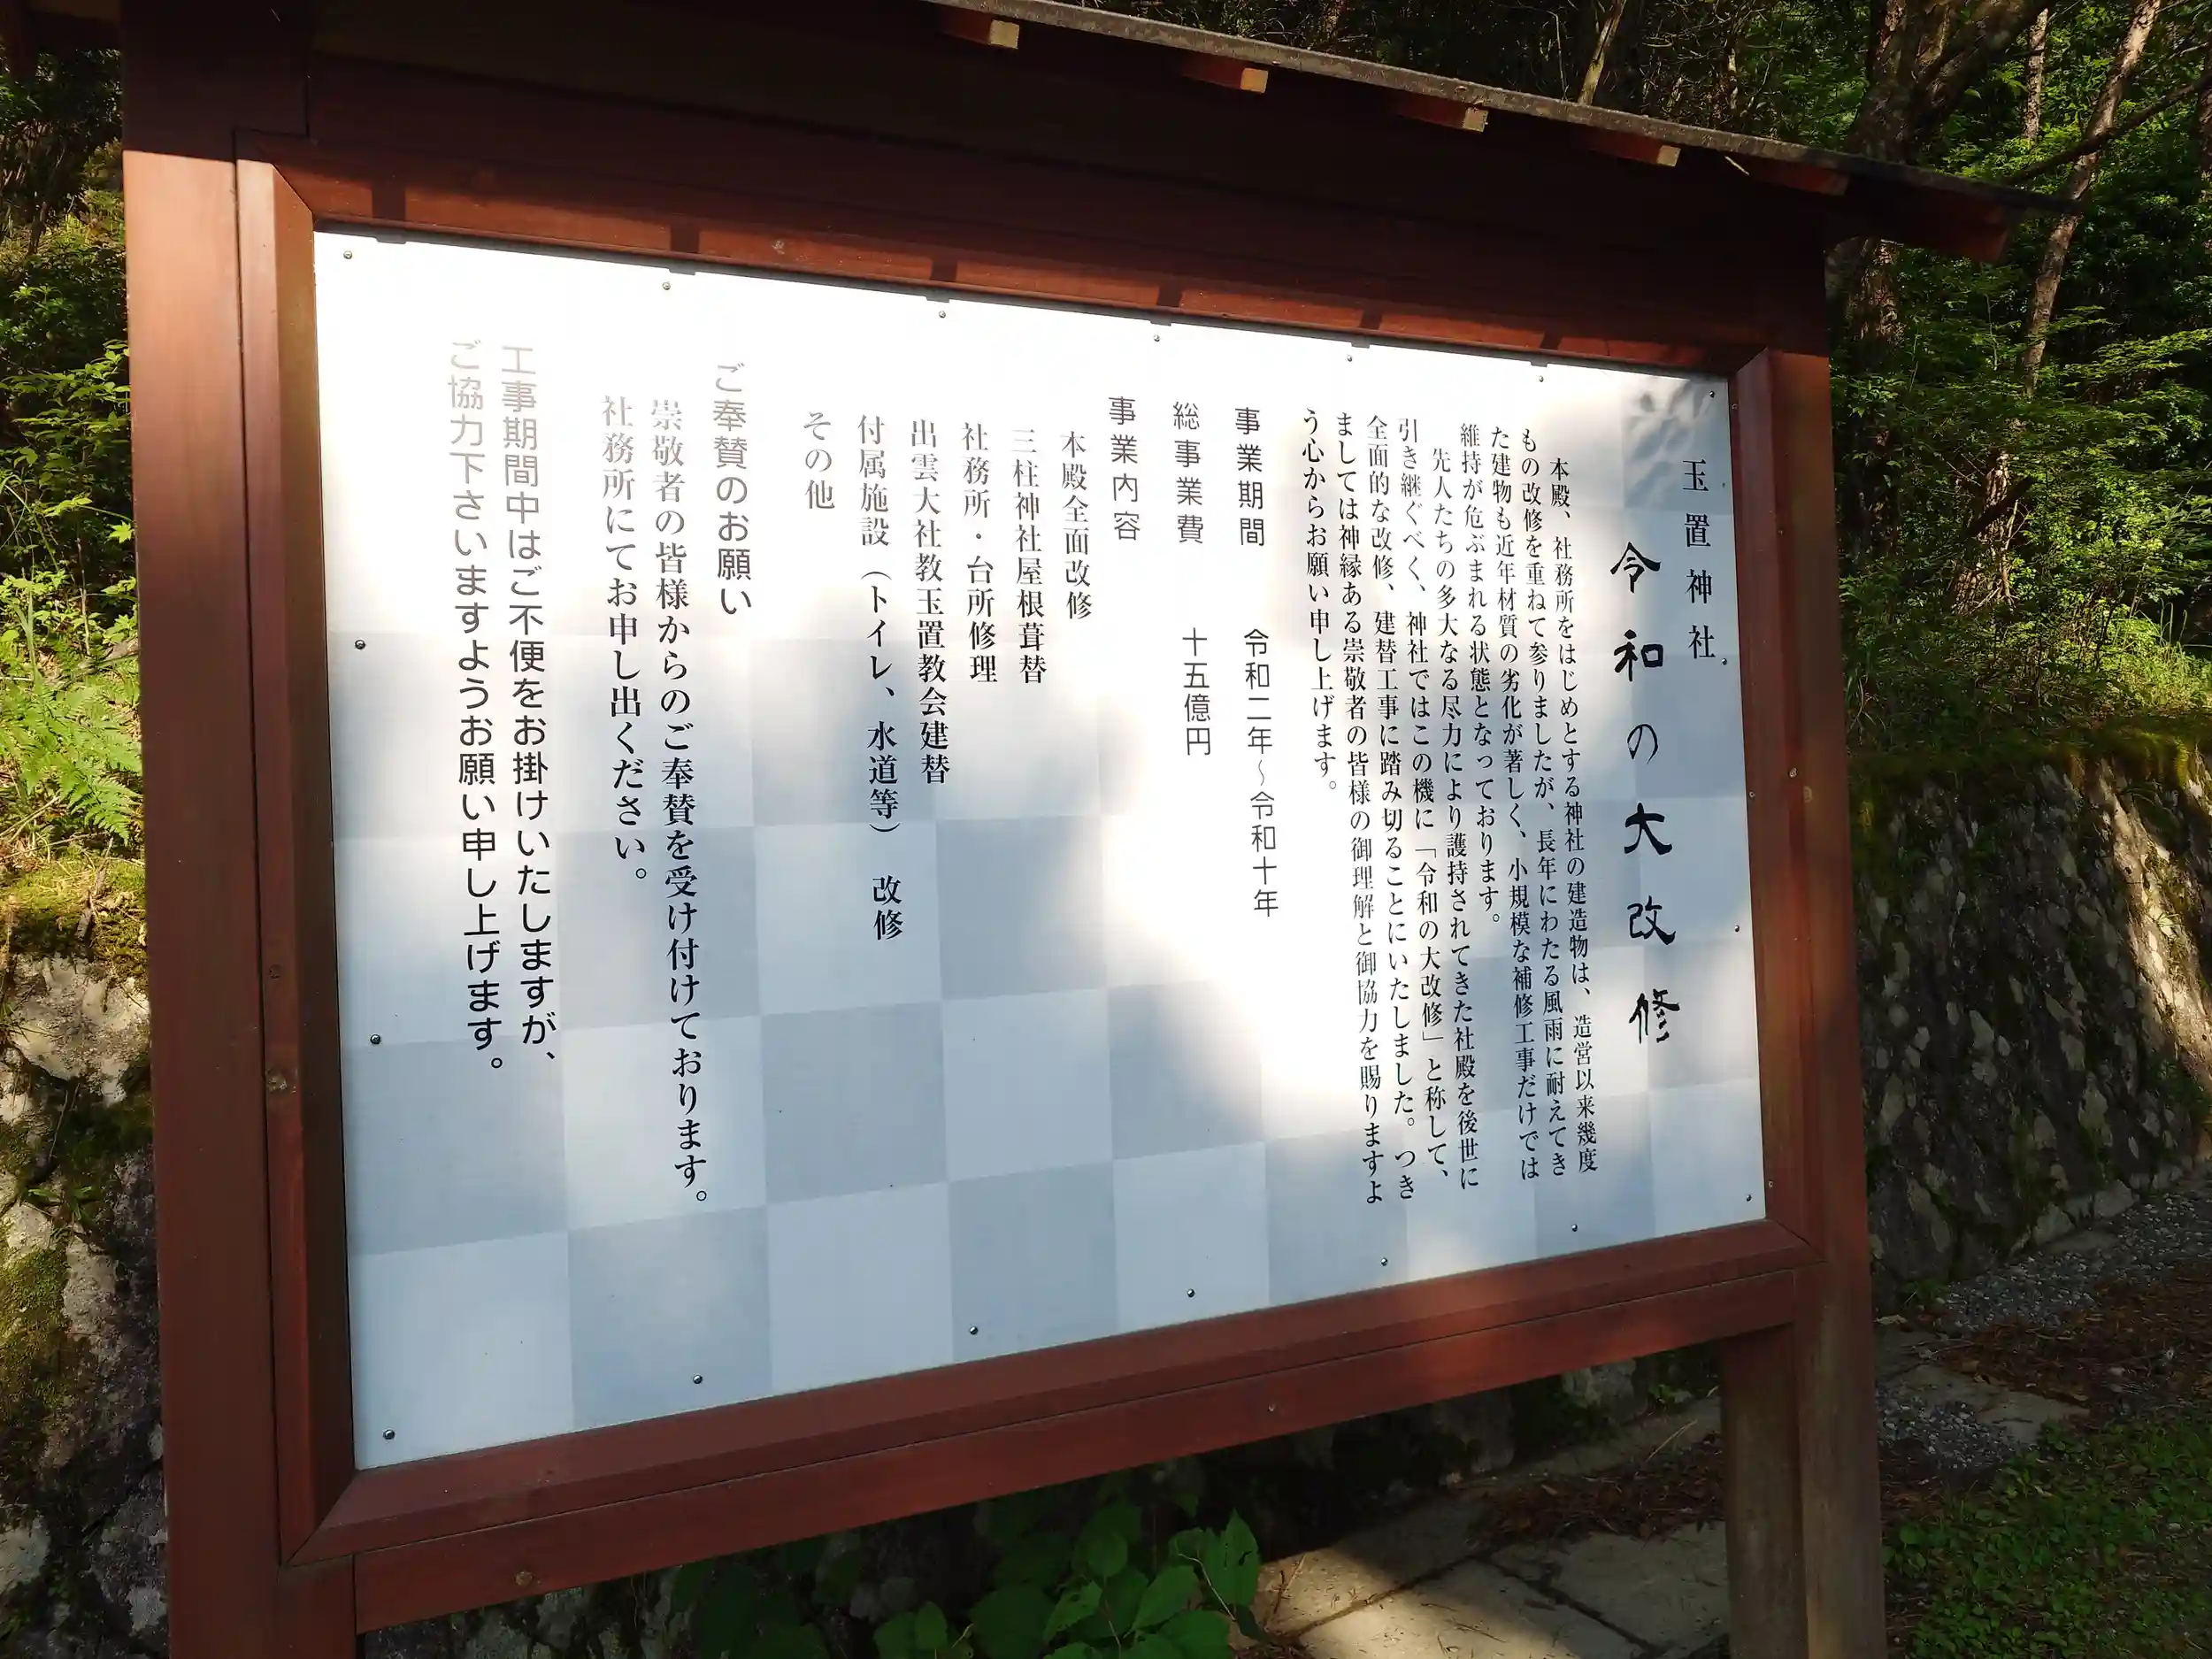 玉置神社
令和の大改修
本殿、社務所をはじめとする神社の建造物は、造営以来幾度
もの改修を重ねて参りましたが、長年にわたる風雨に耐えてき
た建物も近年材質の劣化が著しく、小規模な補修工事だけでは
維持が危ぶまれる状態となっております。
先人たちの多大なる尽力により護持されてきた社殿を後世に
引き継ぐべく、神社ではこの機に「令和の大改修」と称して、
全面的な改修、建替工事に踏み切ることにいたしました。つき
ましては神縁ある崇敬者の皆様の御理解と御協力を賜りますよ
う心からお願い申し上げます。
事業期間 令和二年～令和十年
総事業費 十五億円
事業内容
本殿全面改修
三柱神社屋根葺替
社務所・台所修理
出雲大社教玉置教会建替
付属施設（トイレ、水道等） 改修
その他
ご奉賛のお願い
崇敬者の皆様からのご奉賛を受け付けております。
社務所にてお申し出ください。
工事期間中はご不便をお掛けいたしますが、
ご協力下さいますようお願い申し上げます。